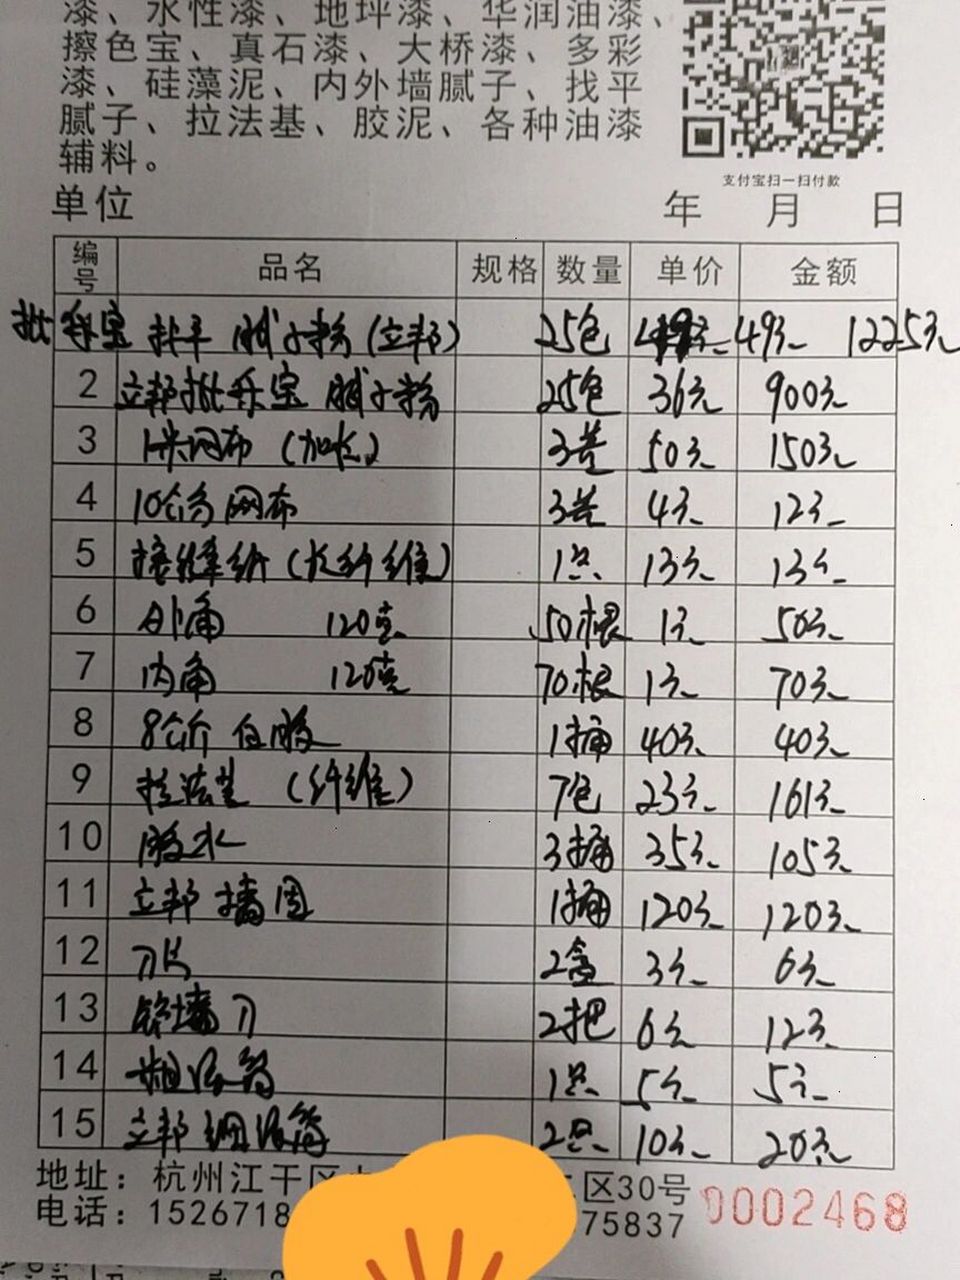 漆、水性漆、地坪漆、华润油漆、
擦色宝、真石漆、大桥漆、多彩
漆、硅藻泥、内外墙腻子、找平
腻子、拉法基、胶泥、各种油漆
辅料。
支付宝扫一扫付款
单位 年 月 日
编号 品名 规格 数量 单价 金额
批乐宝 找平 腻子粉(立邦) 25包 49元 1225元
2 立邦批乐宝 腻子粉 25包 36元 900元
3 1米网布 (加长) 3卷 50元 150元
4 10公分网布 3卷 4元 12元
5 接缝纸 (长纤维) 1只 13元 13元
6 外角 120克 50根 1元 50元
7 内角 120克 70根 1元 70元
8 8公斤 白胶 1桶 40元 40元
9 拉法基 (纤维) 7包 23元 161元
10 胶水 3桶 35元 105元
11 立邦 墙固 1桶 120元 120元
12 刀片 2盒 3元 6元
13 铲墙刀 2把 6元 12元
14 粗滚筒 1只 5元 5元
15 立邦 细滚筒 2只 10元 20元
地址：杭州江干区 区30号
电话：1526718 75837
0002468